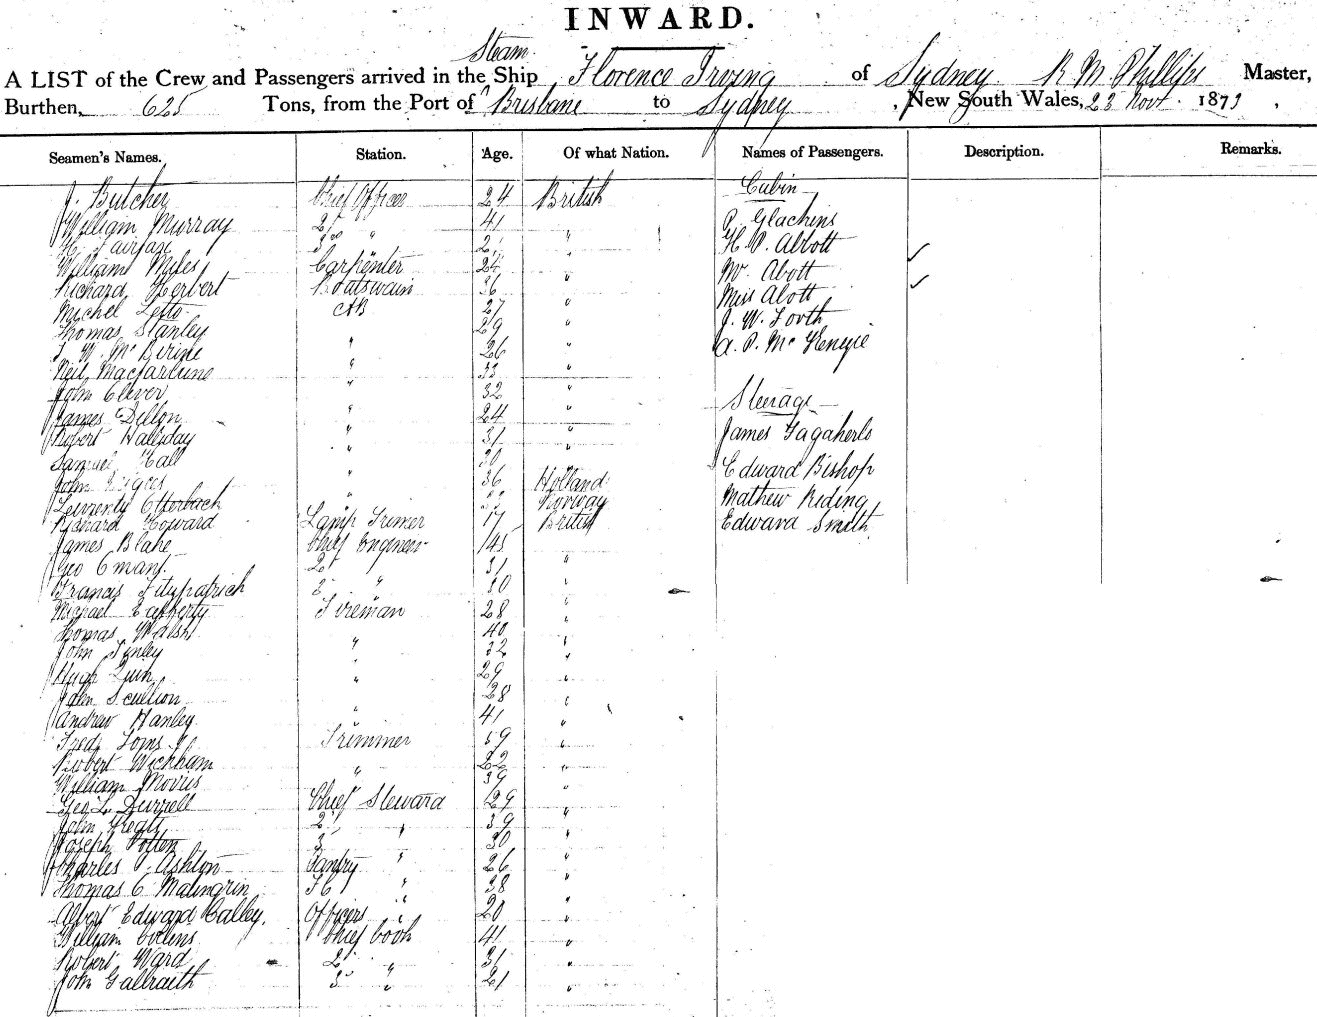 INWARD.
Steam
A LIST of the Crew and Passengers arrived in the Ship Florence Irving of Sydney R M Phillips Master,
Burthen, 625 Tons, from the Port of Brisbane to Sydney, New South Wales, 23 Novr. 1873,
Seamen's Names. Station. Age. Of what Nation. Names of Passengers. Description. Remarks.
J. Butcher Chief Officer 24 British Cabin
William Murray 2d " 41 " P. Glachins
H Fairfax 3rd " " H P. Abbott
William Miles Carpenter 24 " Mr Abott
Richard Herbert Boatswain 36 " Miss Abott
Michel AB 27 " J. W. Footh
Thomas Stanley 29 " A. P. McKenzie
J W. Mc " 26 "
Neil Macfarlane " 33 "
John Clever " 32 " Steerage
James Dillon " 24 "
Robert Halliday " 31 " James
Samuel Hall " 30 "
John " 36 Holland Edward Bishop
Otterback " Norway Mathew Riding
Richard Howard Lamp Trimer 17 British Edward Smith
James Blake Chief Engineer 45
Geo 2d 31 "
Francis Fitzpatrich 3 " 30 "
Michael Fireman 28 "
Thomas Walsh 40 "
John Finley " 32 "
Hugh Quin " 29 "
John Scullion " 28 "
Andrew Hanley " 41 "
Fredk Trimmer 39 "
Robert Wickham 22 "
William Morris " 39 "
Geo L. Durrell Chief Steward 29 "
John 2 " 39 "
Joseph Totten 3 " 30 "
Charles Ashton Pantry " 26 "
Thomas C Malingrin F C " 38 "
Albert Edward Calley. Officers " 20 "
William Collins Chief Cook 41 "
Robert Ward 2 " 31 "
John Galbraith 3 " 21 "